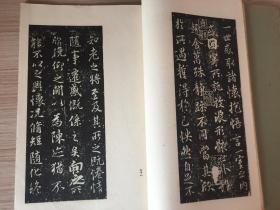 一世或取諸懷抱悟言一室之內
或因寄所託放浪形骸之外雖
趣舍萬殊靜躁不同當其欣
於所遇蹔得於己快然自足不
知老之將至及其所之既惓情
隨事遷感慨係之矣向之所
欣俛仰之閒以為陳迹猶不
能不以之興懷況脩短隨化終